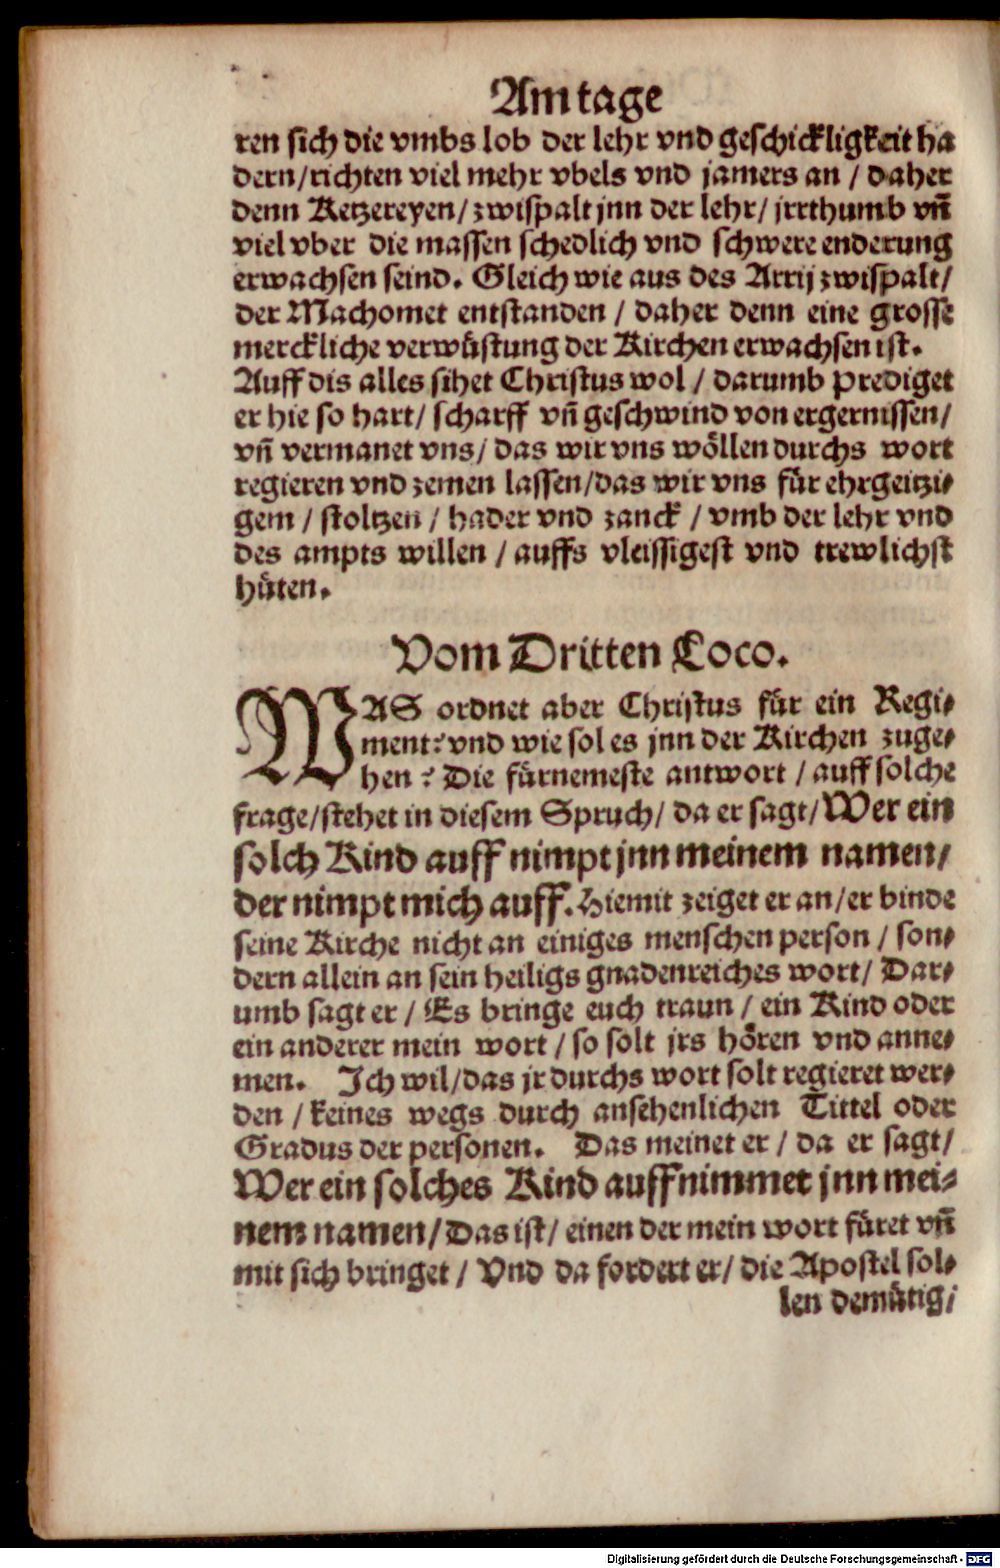 Am tage
ren sich die vmbs lob der lehr vnd geschickligkeit ha
dern/richten viel mehr vbels vnd jamers an / daher
denn Ketzereyen/ zwispalt jnn der lehr/ jrrthumb vñ
viel vber die massen schedlich vnd schwere enderung
erwachsen seind. Gleich wie aus des Arrij zwispalt/
der Machomet entstanden / daher denn eine grosse
merckliche verwüstung der Kirchen erwachsen ist.
Auff dis alles sihet Christus wol / darumb prediget
er hie so hart/ scharff vñ geschwind von ergernissen/
vñ vermanet vns/ das wir vns wöllen durchs wort
regieren vnd zemen lassen/das wir vns für ehrgeitzi-
gem / stoltzen / hader vnd zanck / vmb der lehr vnd
des ampts willen / auffs vleissigest vnd trewlichst
hüten.
Vom Dritten Loco.
WAS ordnet aber Christus für ein Regi-
ment? vnd wie sol es jnn der Kirchen zuge-
hen? Die fürnemeste antwort / auff solche
frage/stehet in diesem Spruch/ da er sagt/ Wer ein
solch Kind auff nimpt jnn meinem namen/
der nimpt mich auff. Hiemit zeiget er an/er binde
seine Kirche nicht an einiges menschen person / son-
dern allein an sein heiligs gnadenreiches wort/ Dar-
umb sagt er / Es bringe euch traun / ein Kind oder
ein anderer mein wort / so solt jrs hören vnd anne-
men. Ich wil/das jr durchs wort solt regieret wer-
den / keines wegs durch ansehenlichen Tittel oder
Gradus der personen. Das meinet er / da er sagt/
Wer ein solches Kind auffnimmet jnn mei-
nem namen/ Das ist/ einen der mein wort füret vñ
mit sich bringet / Vnd da fordert er/ die Apostel sol-
len demütig/
Digitalisierung gefördert durch die Deutsche Forschungsgemeinschaft - DFG